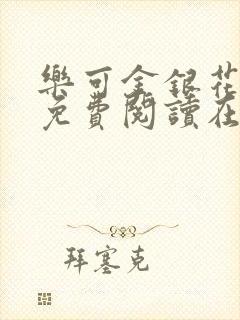 樂可金銀花
免費閱讀在
拜塞克